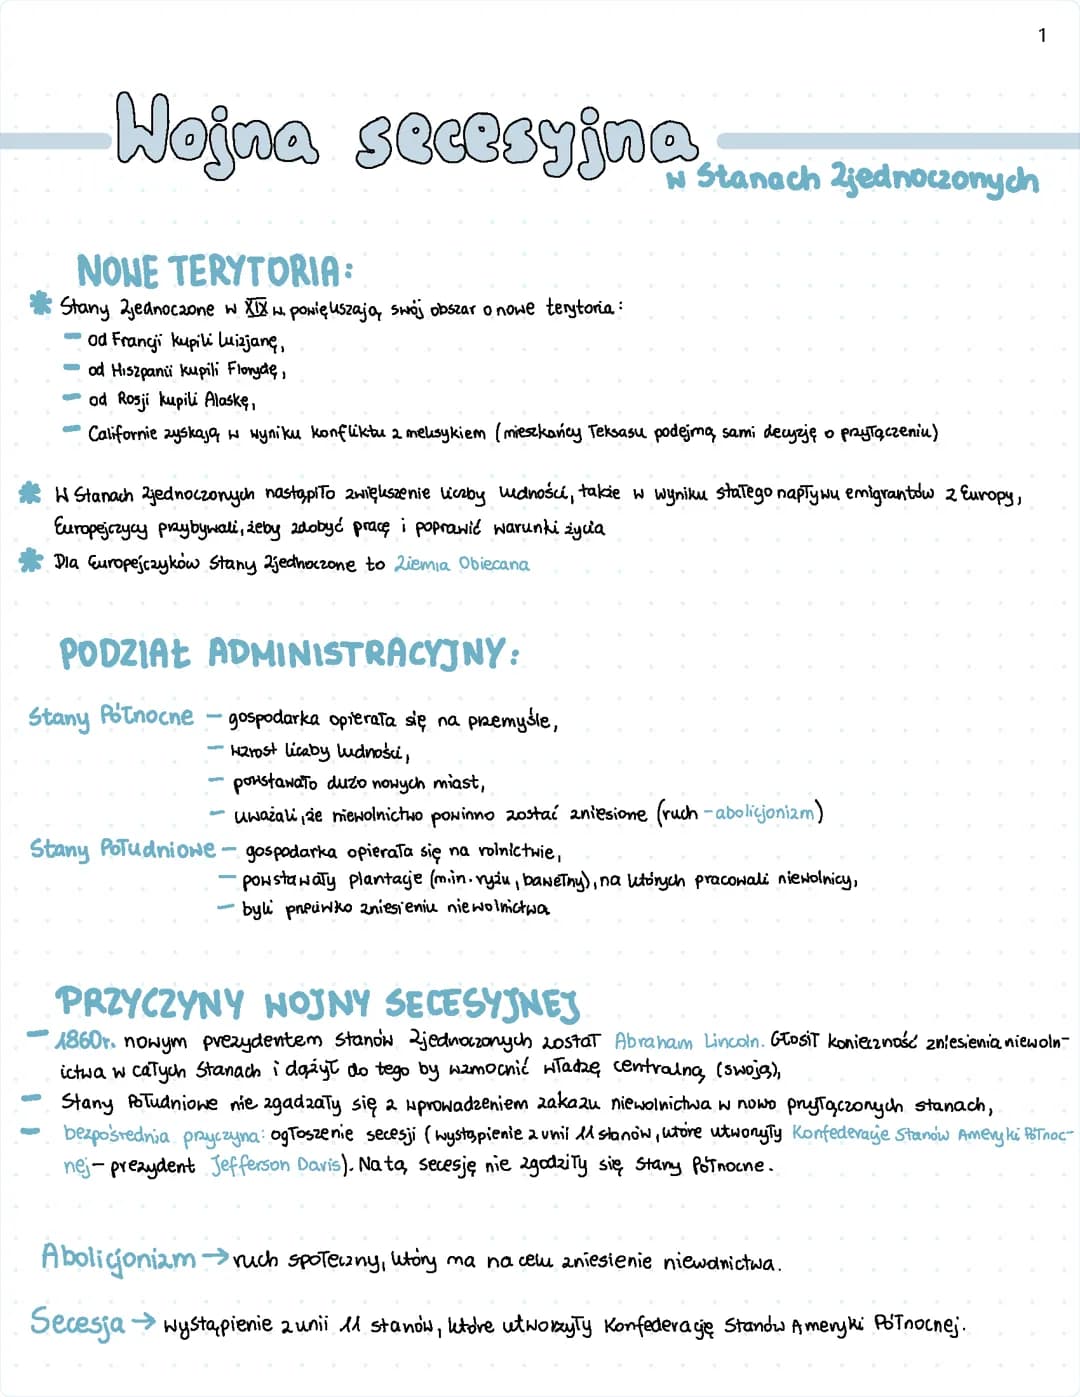 1
Wojna secesyjna
w Stanach Zjednoczonych
NOWE TERYTORIA:
Stany Zjednoczone w XIX w. powiększają swój obszar o nowe terytoria:
- od Francji kupili Luizjanę,
- od Hiszpanii kupili Florydę,
- od Rosji kupili Alaskę,
- Californie zyskają w wyniku konfliktu z meksykiem (mieszkańcy Teksasu podejmą sami decyzję o przyłączeniu)
W Stanach Zjednoczonych nastąpiło zwiększenie liczby ludności, także w wyniku stałego napływu emigrantów z Europy,
Europejczycy przybywali, żeby zdobyć pracę i poprawić warunki życia
Dla Europejczyków Stany Zjednoczone to Ziemia Obiecana
PODZIAŁ ADMINISTRACYJNY:
Stany Północne - gospodarka opierała się na przemyśle,
- wzrost liczby ludności,
- powstawało dużo nowych miast,
- uważali, że niewolnictwo powinno zostać zniesione (ruch - abolicjonizm)
Stany Południowe - gospodarka opierała się na rolnictwie,
- powstawały plantacje (m.in. ryżu, bawełny), na których pracowali niewolnicy,
- byli przeciwko zniesieniu niewolnictwa
PRZYCZYNY WOJNY SECESYJNEJ
- 1860r. nowym prezydentem Stanów Zjednoczonych został Abraham Lincoln. Głosił konieczność zniesienia niewoln-
ictwa w całych Stanach i dążył do tego by wzmocnić władzę centralną (swoją),
- Stany Południowe nie zgadzały się z wprowadzeniem zakazu niewolnictwa w nowo przyłączonych stanach,
- bezpośrednia przyczyna: ogłoszenie secesji (wystąpienie z unii 11 stanów, które utworzyły Konfederacje Stanów Ameryki Północ-
nej - prezydent Jefferson Davis). Na tą secesję nie zgodziły się Stany Północne.
Abolicjonizm → ruch społeczny, który ma na celu zniesienie niewolnictwa.
Secesja → wystąpienie z unii 11 stanów, które utworzyły Konfederację Stanów Ameryki Północnej.